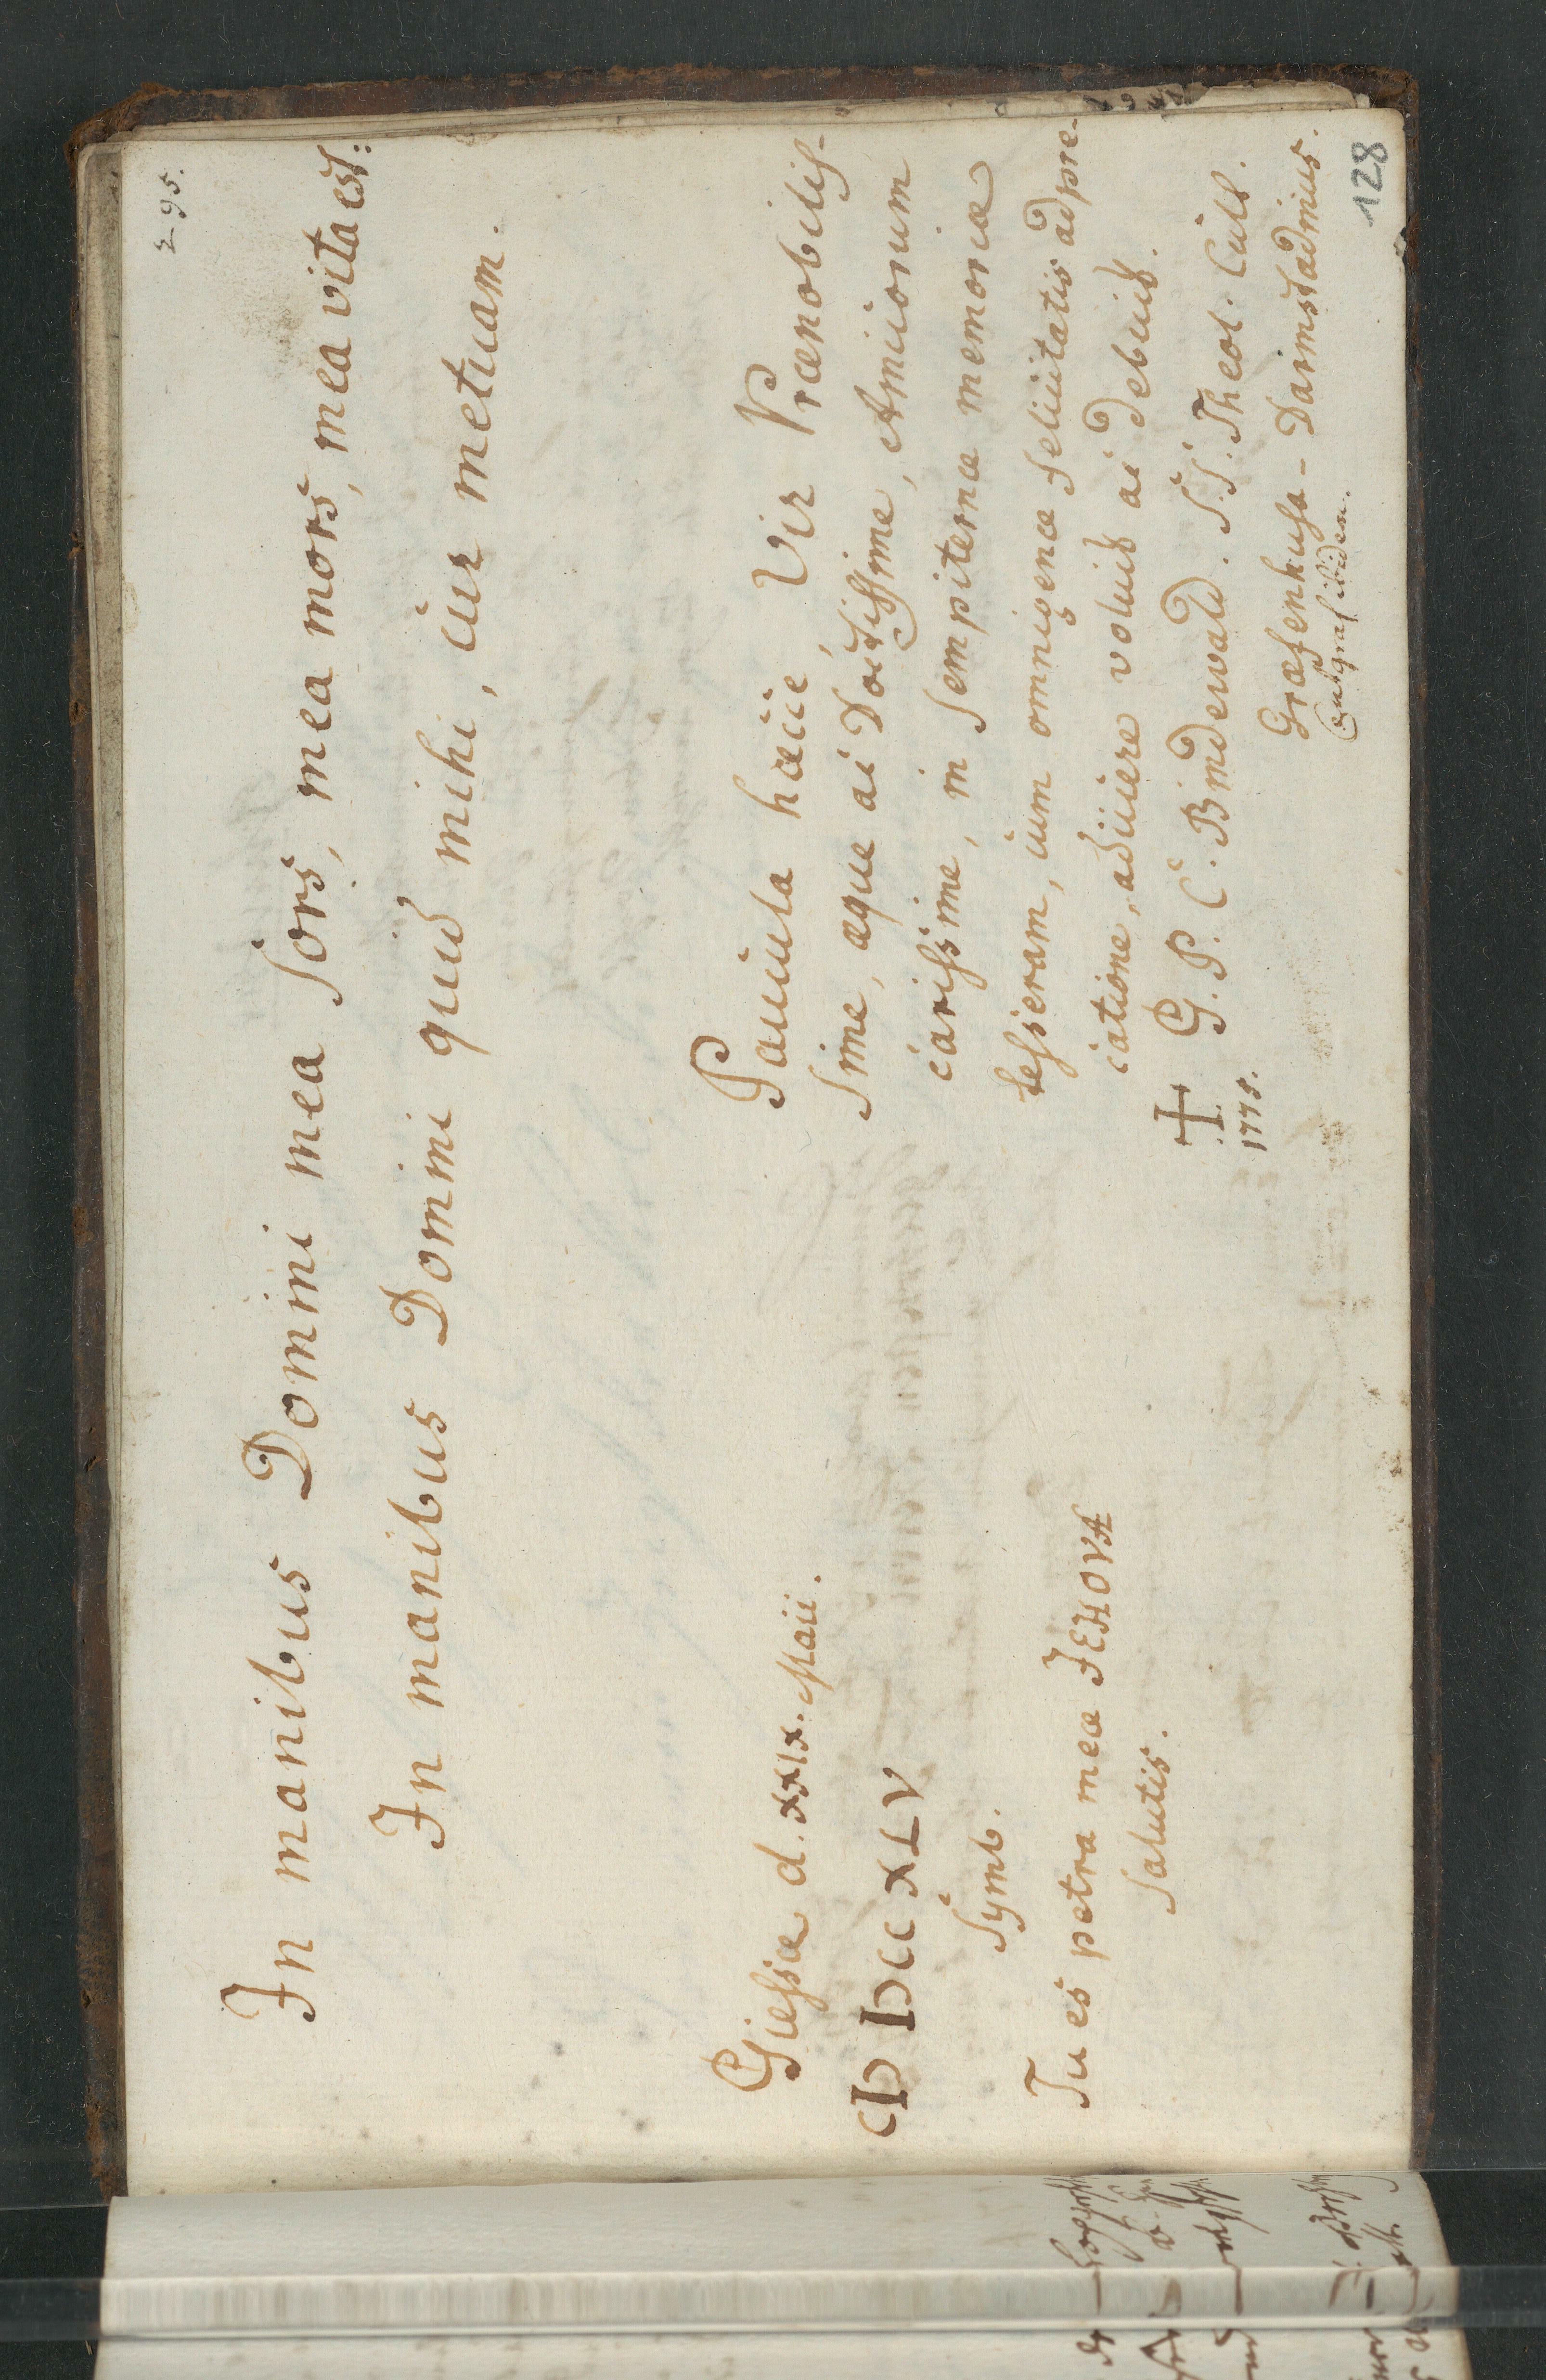 295.
In manibus Domini mea sors, mea mors, mea vita est:
In manibus Domini quid mihi, cur metuam.
Giessæ d. XXIX. Maii.
CIƆ IƆCC XLV
Symb.
Tu es petra meæ JEHOVA
salutis.
Paucula hæcce, Vir Prænobilis-
sime, æque ac Doctissime, Amicorum
carissime, in sempiternæ memoriæ
tesseram, cum omnigenæ felicitatis adpre-
catione, adiicere voluit ac debuit.
G. P. C. Bindewald. S.S. Theol. Cult.
Græfenhusa-Darmstadinus.
1778.
128